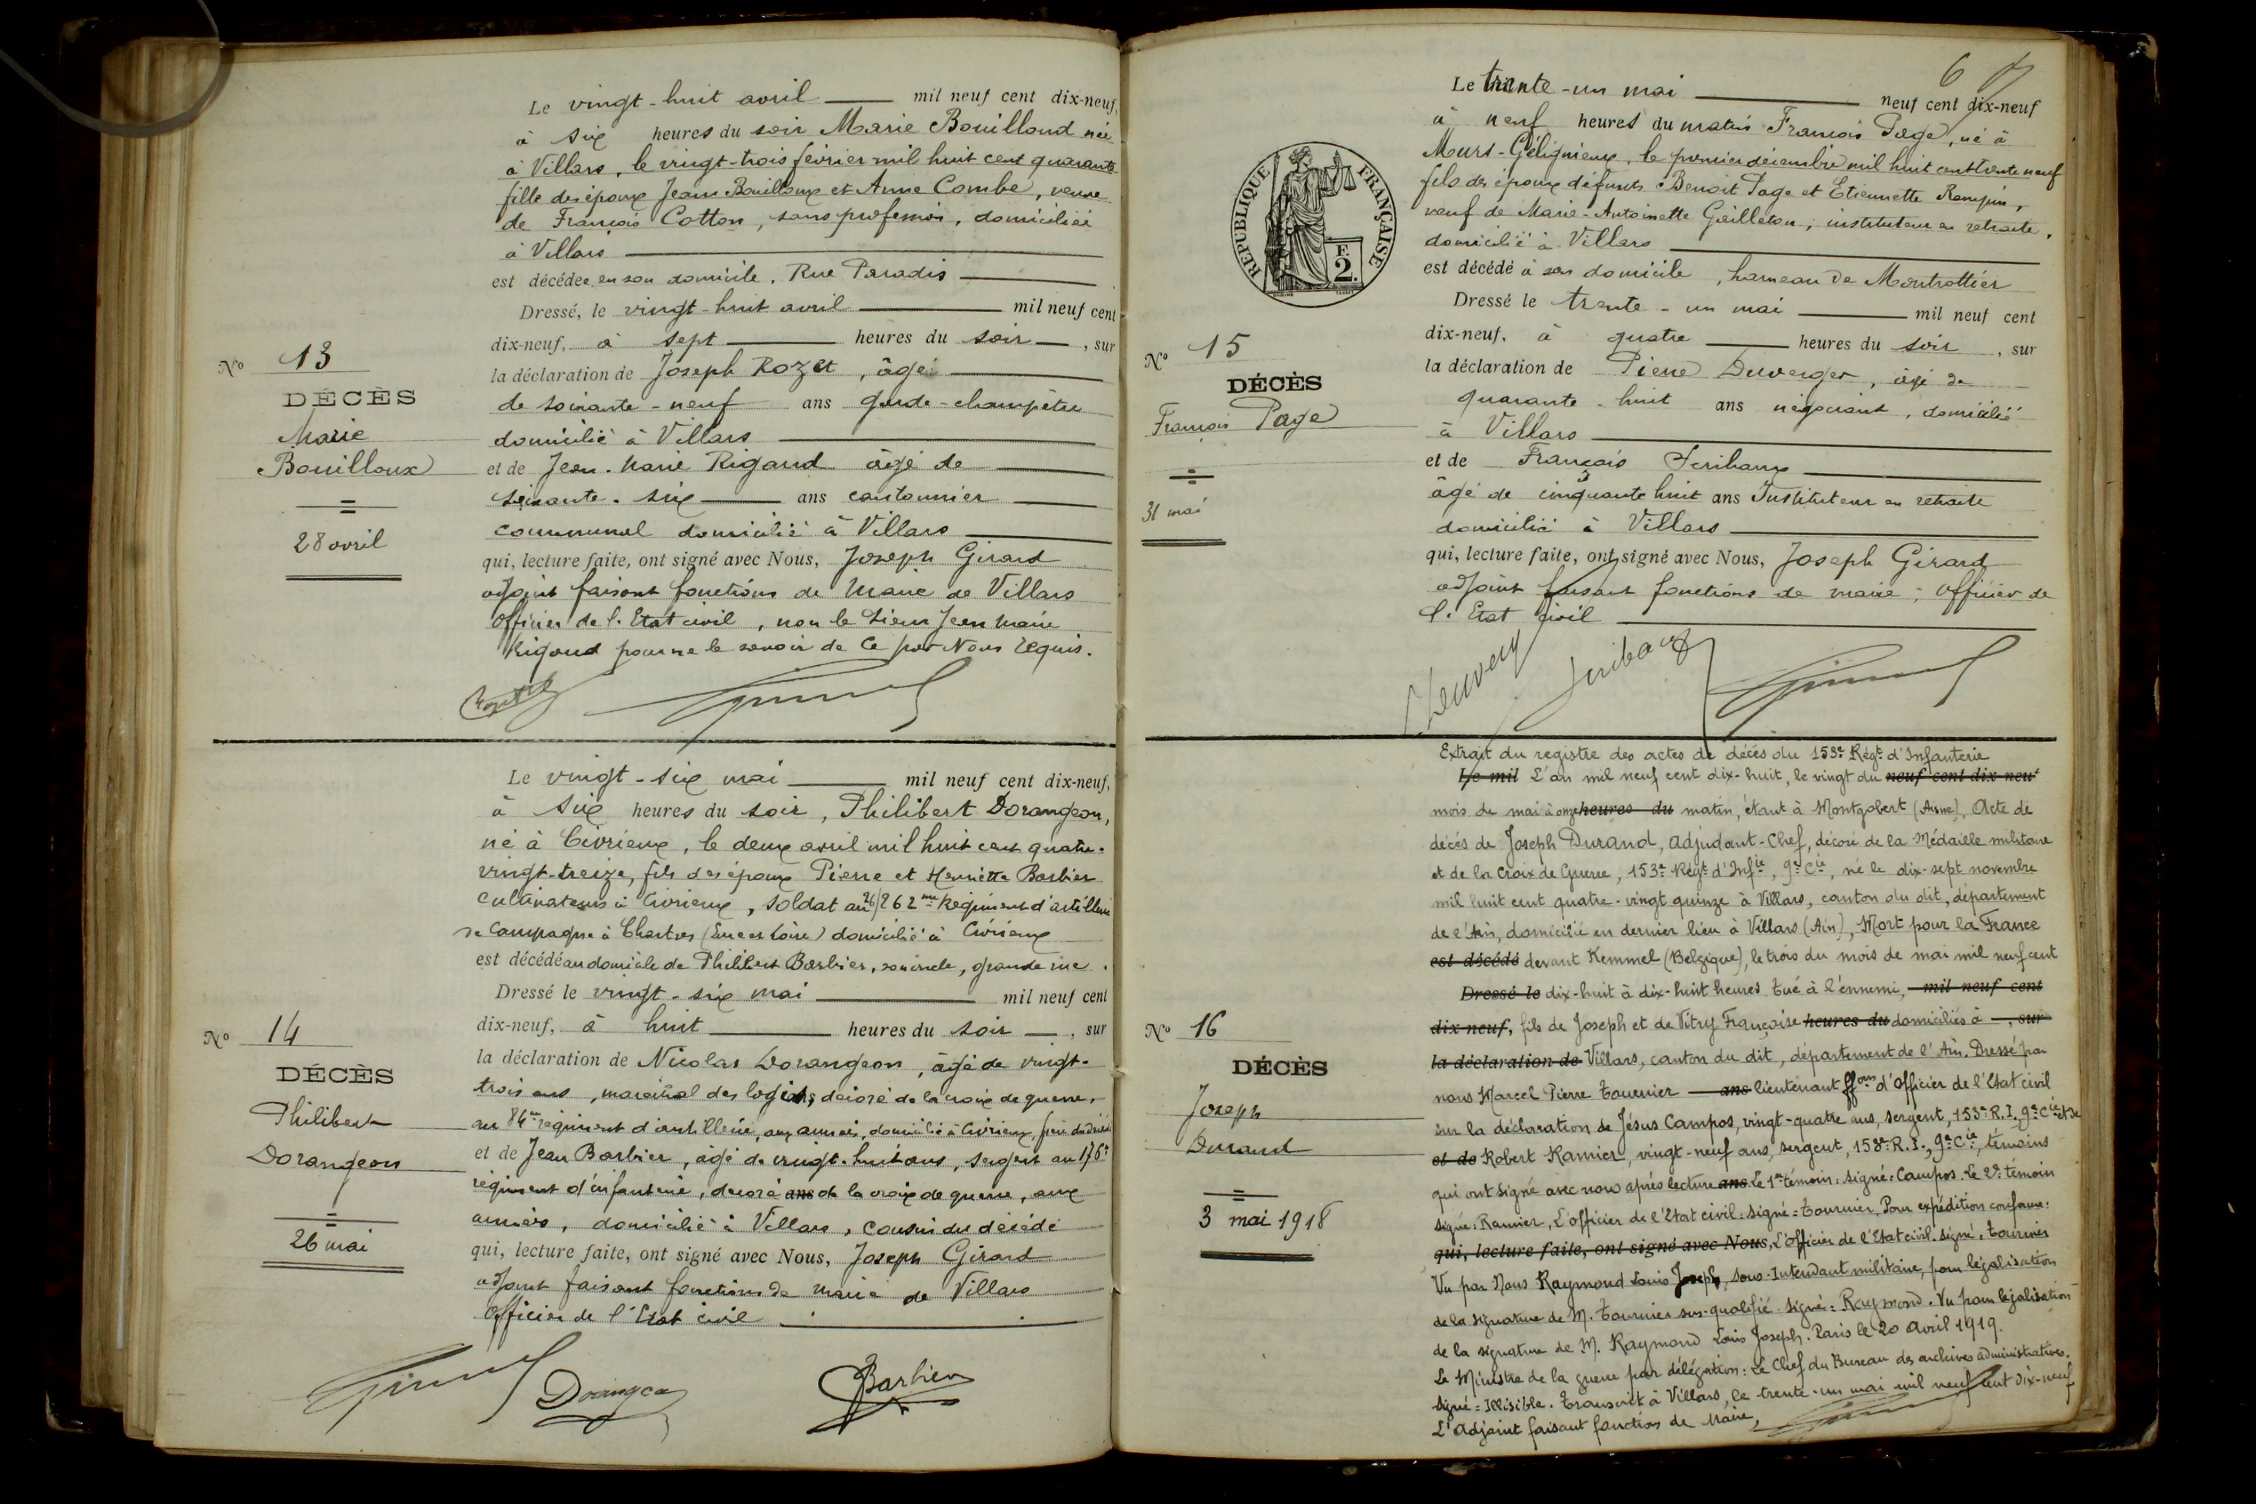 Le vingt-huit avril mil neuf cent dix-neuf,
à six heures du soir Marie Bouilloud née
à Villars, le vingt-trois février mil huit cent quarante
fille des époux Jean Bouilloux et Anne Combe, veuve
de François Cotton, sans profession, domiciliée
à Villars
est décédée en son domicile, Rue Paradis
Dressé, le vingt-huit avril mil neuf cent
dix-neuf, à sept heures du soir, sur
la déclaration de Joseph Rozet, âgé
de soixante-neuf ans garde-champêtre
domicilié à Villars
et de Jean-Marie Rigaud âgé de
soixante-six ans cantonnier
communal domicilié à Villars
qui, lecture faite, ont signé avec Nous, Joseph Girard
adjoint faisant fonctions de Maire de Villars
Officier de l'Etat civil, non le sieur Jean Marie
Rigaud pour ne le savoir de ce par Nous requis.
No 13
DÉCÈS
Marie
Bouilloux
28 avril
Le vingt-six mai mil neuf cent dix-neuf,
à six heures du soir, Philibert Dorangeon,
né à Civrieux, le deux avril mil huit cent quatre-
vingt-treize, fils des époux Pierre et Henriette Barbier
cultivateurs à Civrieux, soldat au 26/262me Régiment d'artillerie
de Campagne à Chartres (Eure et Loire) domicilié à Civrieux
est décédé au domicile de Philibert Barbier, son oncle, grande rue.
Dressé le vingt-six mai mil neuf cent
dix-neuf, à huit heures du soir, sur
la déclaration de Nicolas Dorangeon, âgé de vingt-
trois ans, maréchal des logis, décoré de la croix de guerre,
au 84me régiment d'artillerie, aux armées, domicilié à Civrieux, frère du
et de Jean Barbier, âgé de vingt-huit ans, sergent au 176e
régiment d'infanterie, décoré ans de la croix de guerre, aux
armées, domicilié à Villars, cousin du décédé
qui, lecture faite, ont signé avec Nous, Joseph Girard
adjoint faisant fonctions de Maire de Villars
Officier de l'Etat civil
Dorangeon Barbier
No 14
DÉCÈS
Philibert
Dorangeon
26 mai
6
Le trente-un mai neuf cent dix-neuf
à neuf heures du matin François Page, né à
Murs-Gélignieux, le premier décembre mil huit cent trente neuf
fils des époux défunts Benoit Page et Etiennette Rampin,
veuf de Marie-Antoinette Gailleton, instituteur en retraite,
domicilié à Villars
est décédé à son domicile, hameau de Montrottier
Dressé le trente-un mai mil neuf cent
dix-neuf, à quatre heures du soir, sur
la déclaration de Pierre Duverger, âgé de
quarante-huit ans négociant, domicilié
à Villars
et de François Scribaux
âgé de cinquante huit ans Instituteur en retraite
domicilié à Villars
qui, lecture faite, ont signé avec Nous, Joseph Girard
adjoint faisant fonctions de maire; Officier de
l'Etat civil
RÉPUBLIQUE FRANÇAISE
F.
2
No 15
DÉCÈS
François Page
31 mai
Extrait du registre des actes de décès du 153e Régt d'Infanterie
Le mil L'an mil neuf cent dix-huit, le vingt du neuf cent dix neuf
mois de mai à onze heures du matin, étant à Montgobert (Aisne), Acte de
décès de Joseph Durand, Adjudant-Chef, décoré de la Médaille militaire
et de la Croix de Guerre, 153e Régt d'Infie, 9e Cie, né le dix-sept novembre
mil huit cent quatre-vingt quinze à Villars, canton du dit, département
de l'Ain, domicilié en dernier lieu à Villars (Ain), Mort pour la France
est décédé devant Kemmel (Belgique), le trois du mois de mai mil neuf cent
Dressé le dix-huit à dix-huit heures. Tué à l'ennemi, mil neuf cent
dix-neuf, fils de Joseph et de Vitry Françoise heures du domiciliés à, sur
la déclaration de Villars, canton du dit, département de l'Ain. Dressé par
nous Marcel Pierre Tournier ans lieutenant ffons d'Officier de l'Etat civil
sur la déclaration de Jésus Campos, vingt-quatre ans, sergent, 153e R.I. 9e Cie et de
et de Robert Ramier, vingt-neuf ans, sergent, 153e R.I., 9e Cie, témoins
qui ont signé avec nous après lecture ans Le 1er témoin: signé: Campos. Le 2e témoin
signé: Ramier, L'officier de l'Etat civil: signé = Tournier. Pour expédition conforme:
qui, lecture faite, ont signé avec Nous, L'officier de l'Etat civil. signé: Tournier
Vu par Nous Raymond Louis Joseph, sous-Intendant militaire, pour légalisation
de la signature de M. Tournier sus-qualifié. signé: Raymond. Vu pour légalisation
de la signature de M. Raymond Louis Joseph. Paris le 20 avril 1919.
Le Ministre de la guerre par délégation: Le Chef du Bureau des archives administratives.
signé = Illisible. Transcrit à Villars, le trente-un mai mil neuf cent dix-neuf
L'Adjoint faisant fonction de Maire,
No 16
DÉCÈS
Joseph
Durand
3 mai 1918